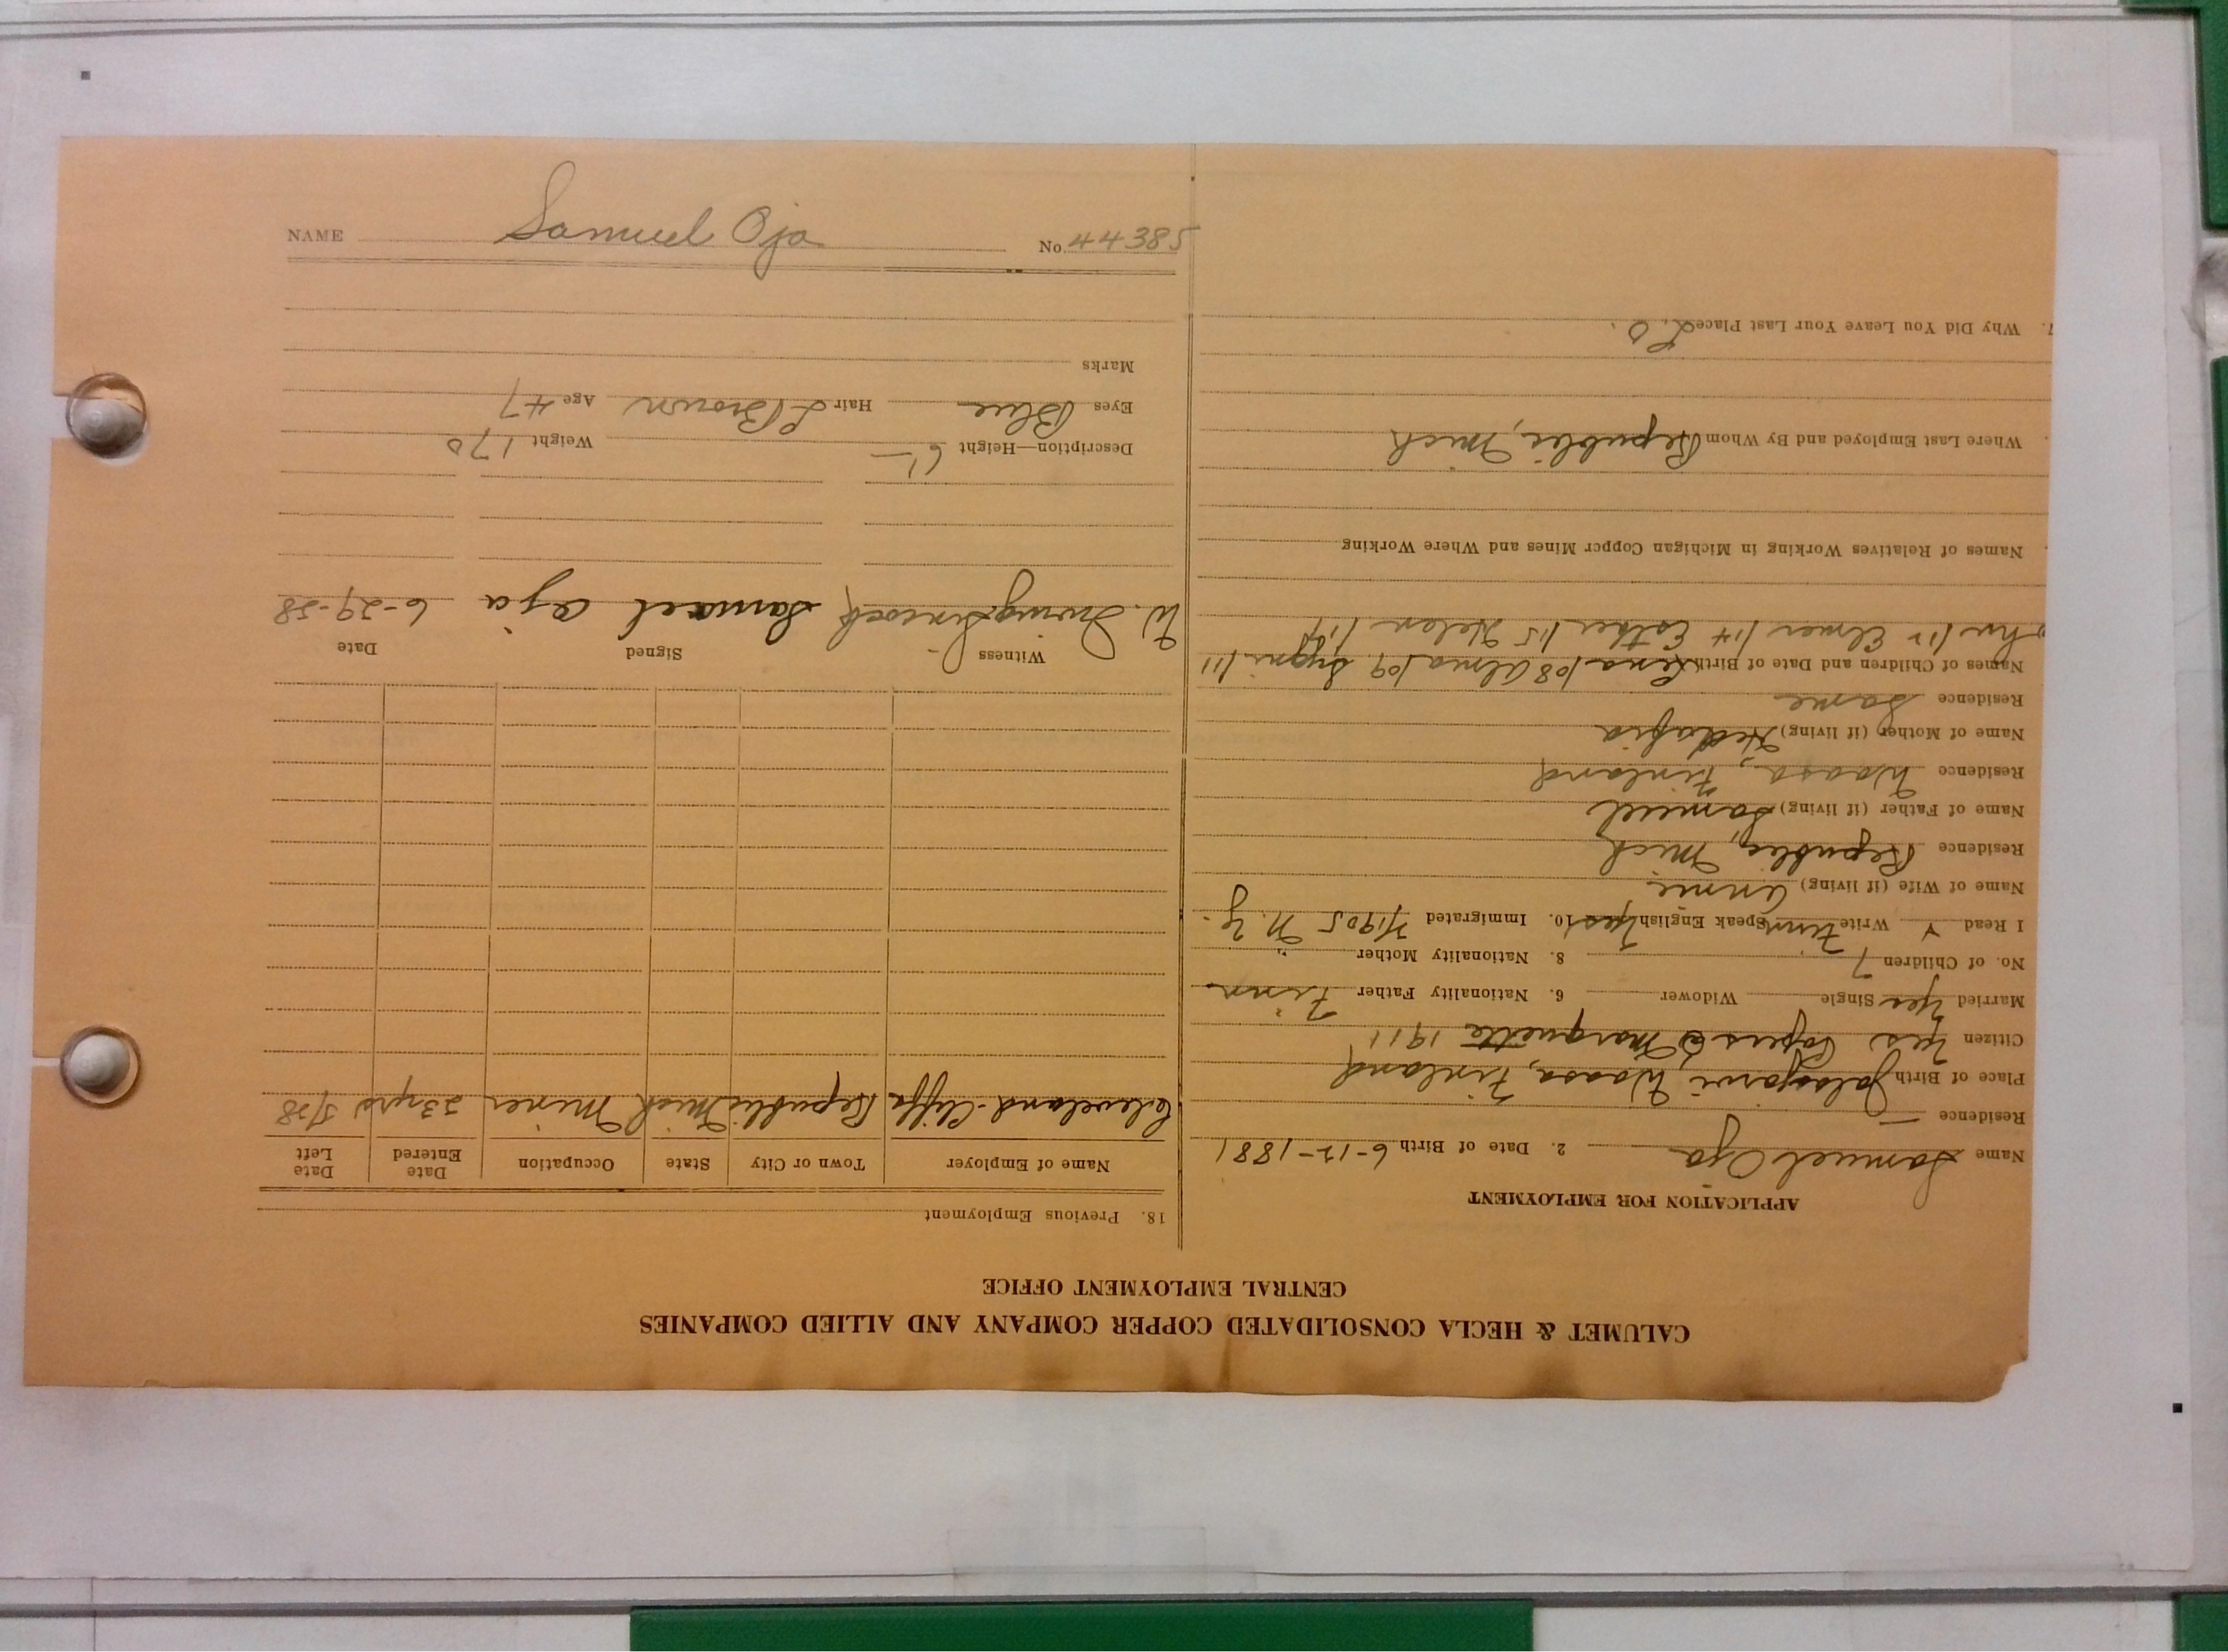 CALUMET & HECLA CONSOLIDATED COPPER COMPANY AND ALLIED COMPANIES
CENTRAL EMPLOYMENT OFFICE
APPLICATION FOR EMPLOYMENT
Name Samuel Oja 2. Date of Birth 6-12-1881
Residence —
Place of Birth Jalasjarvi, Waasa, Finland
Citizen Yes Papers @ Marquette 1911
Married Yes Single Widower 6. Nationality Father Finn
No. of Children 7 8. Nationality Mother "
I Read Y Write Finn Speak English Yes 10. Immigrated 7/1905 N.Y.
Name of Wife (if living) Annie
Residence Republic, Mich
Name of Father (if living) Samuel
Residence Waasa, Finland
Name of Mother (if living)
Residence Same
Names of Children and Date of Birth Lena/08 Alma/09 /11
/12 Elmer/14 Esther/15 Helen/17
Names of Relatives Working in Michigan Copper Mines and Where Working
Where Last Employed and By Whom Republic, Mich
7. Why Did You Leave Your Last Place L.O.
18. Previous Employment
Name of Employer Town or City State Occupation Date Entered Date Left
Cleveland-Cliffs Republic Mich Miner 23 yrs 5/28
Witness Signed Date
W. Samuel Oja 6-29-28
Description—Height 6'— Weight 170
Eyes Blue Hair L Brown Age 47
Marks
NAME Samuel Oja No. 44385